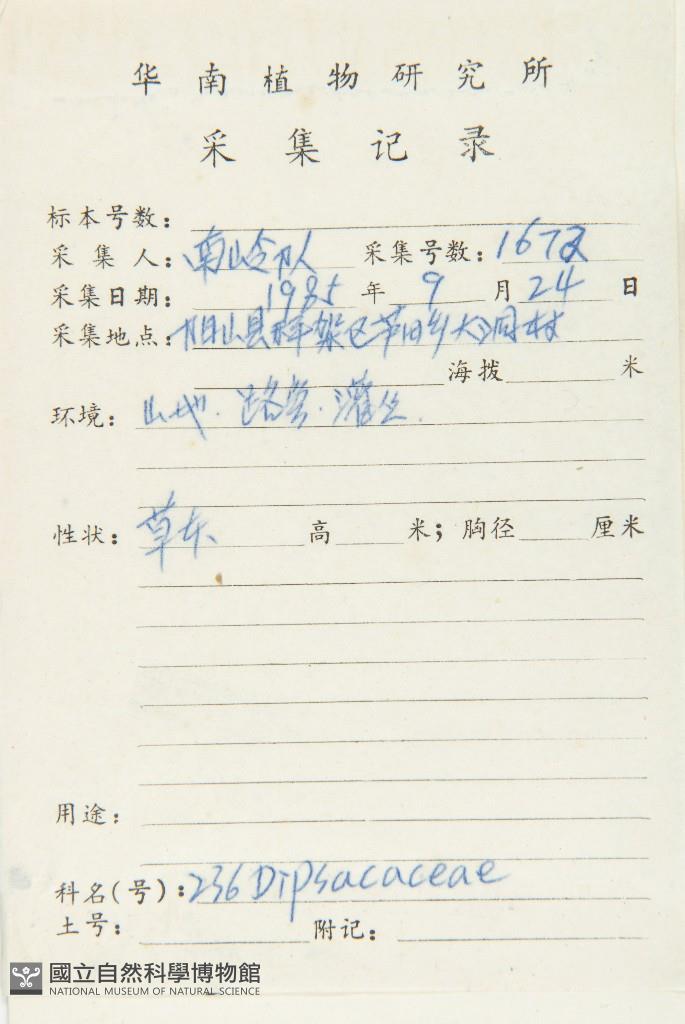 华南植物研究所
采集记录
标本号数：
采集人：南岭队 采集号数：1672
采集日期：1985年9月24日
采集地点：阳山县秤架区茅田乡大洞村
海拨 米
环境：山地．路旁．灌丛．
性状：草本 高 米；胸径 厘米
用途：
科名(号)：236 Dipsacaceae
土号： 附记：
國立自然科學博物館
NATIONAL MUSEUM OF NATURAL SCIENCE